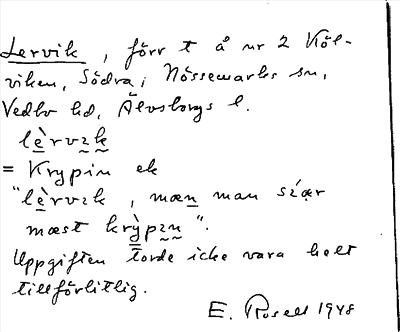 Lervik, förr t å nr 2 Köl-
viken, Södra, Nössemarks sn,
Vedbo hd, Älvsborgs l.
lèrvık
= Krypin ek
"lèrvık, mæn man siær
mæst krỳpın".
Uppgiften torde icke vara helt
tillförlitlig.
E. Rosell 1948